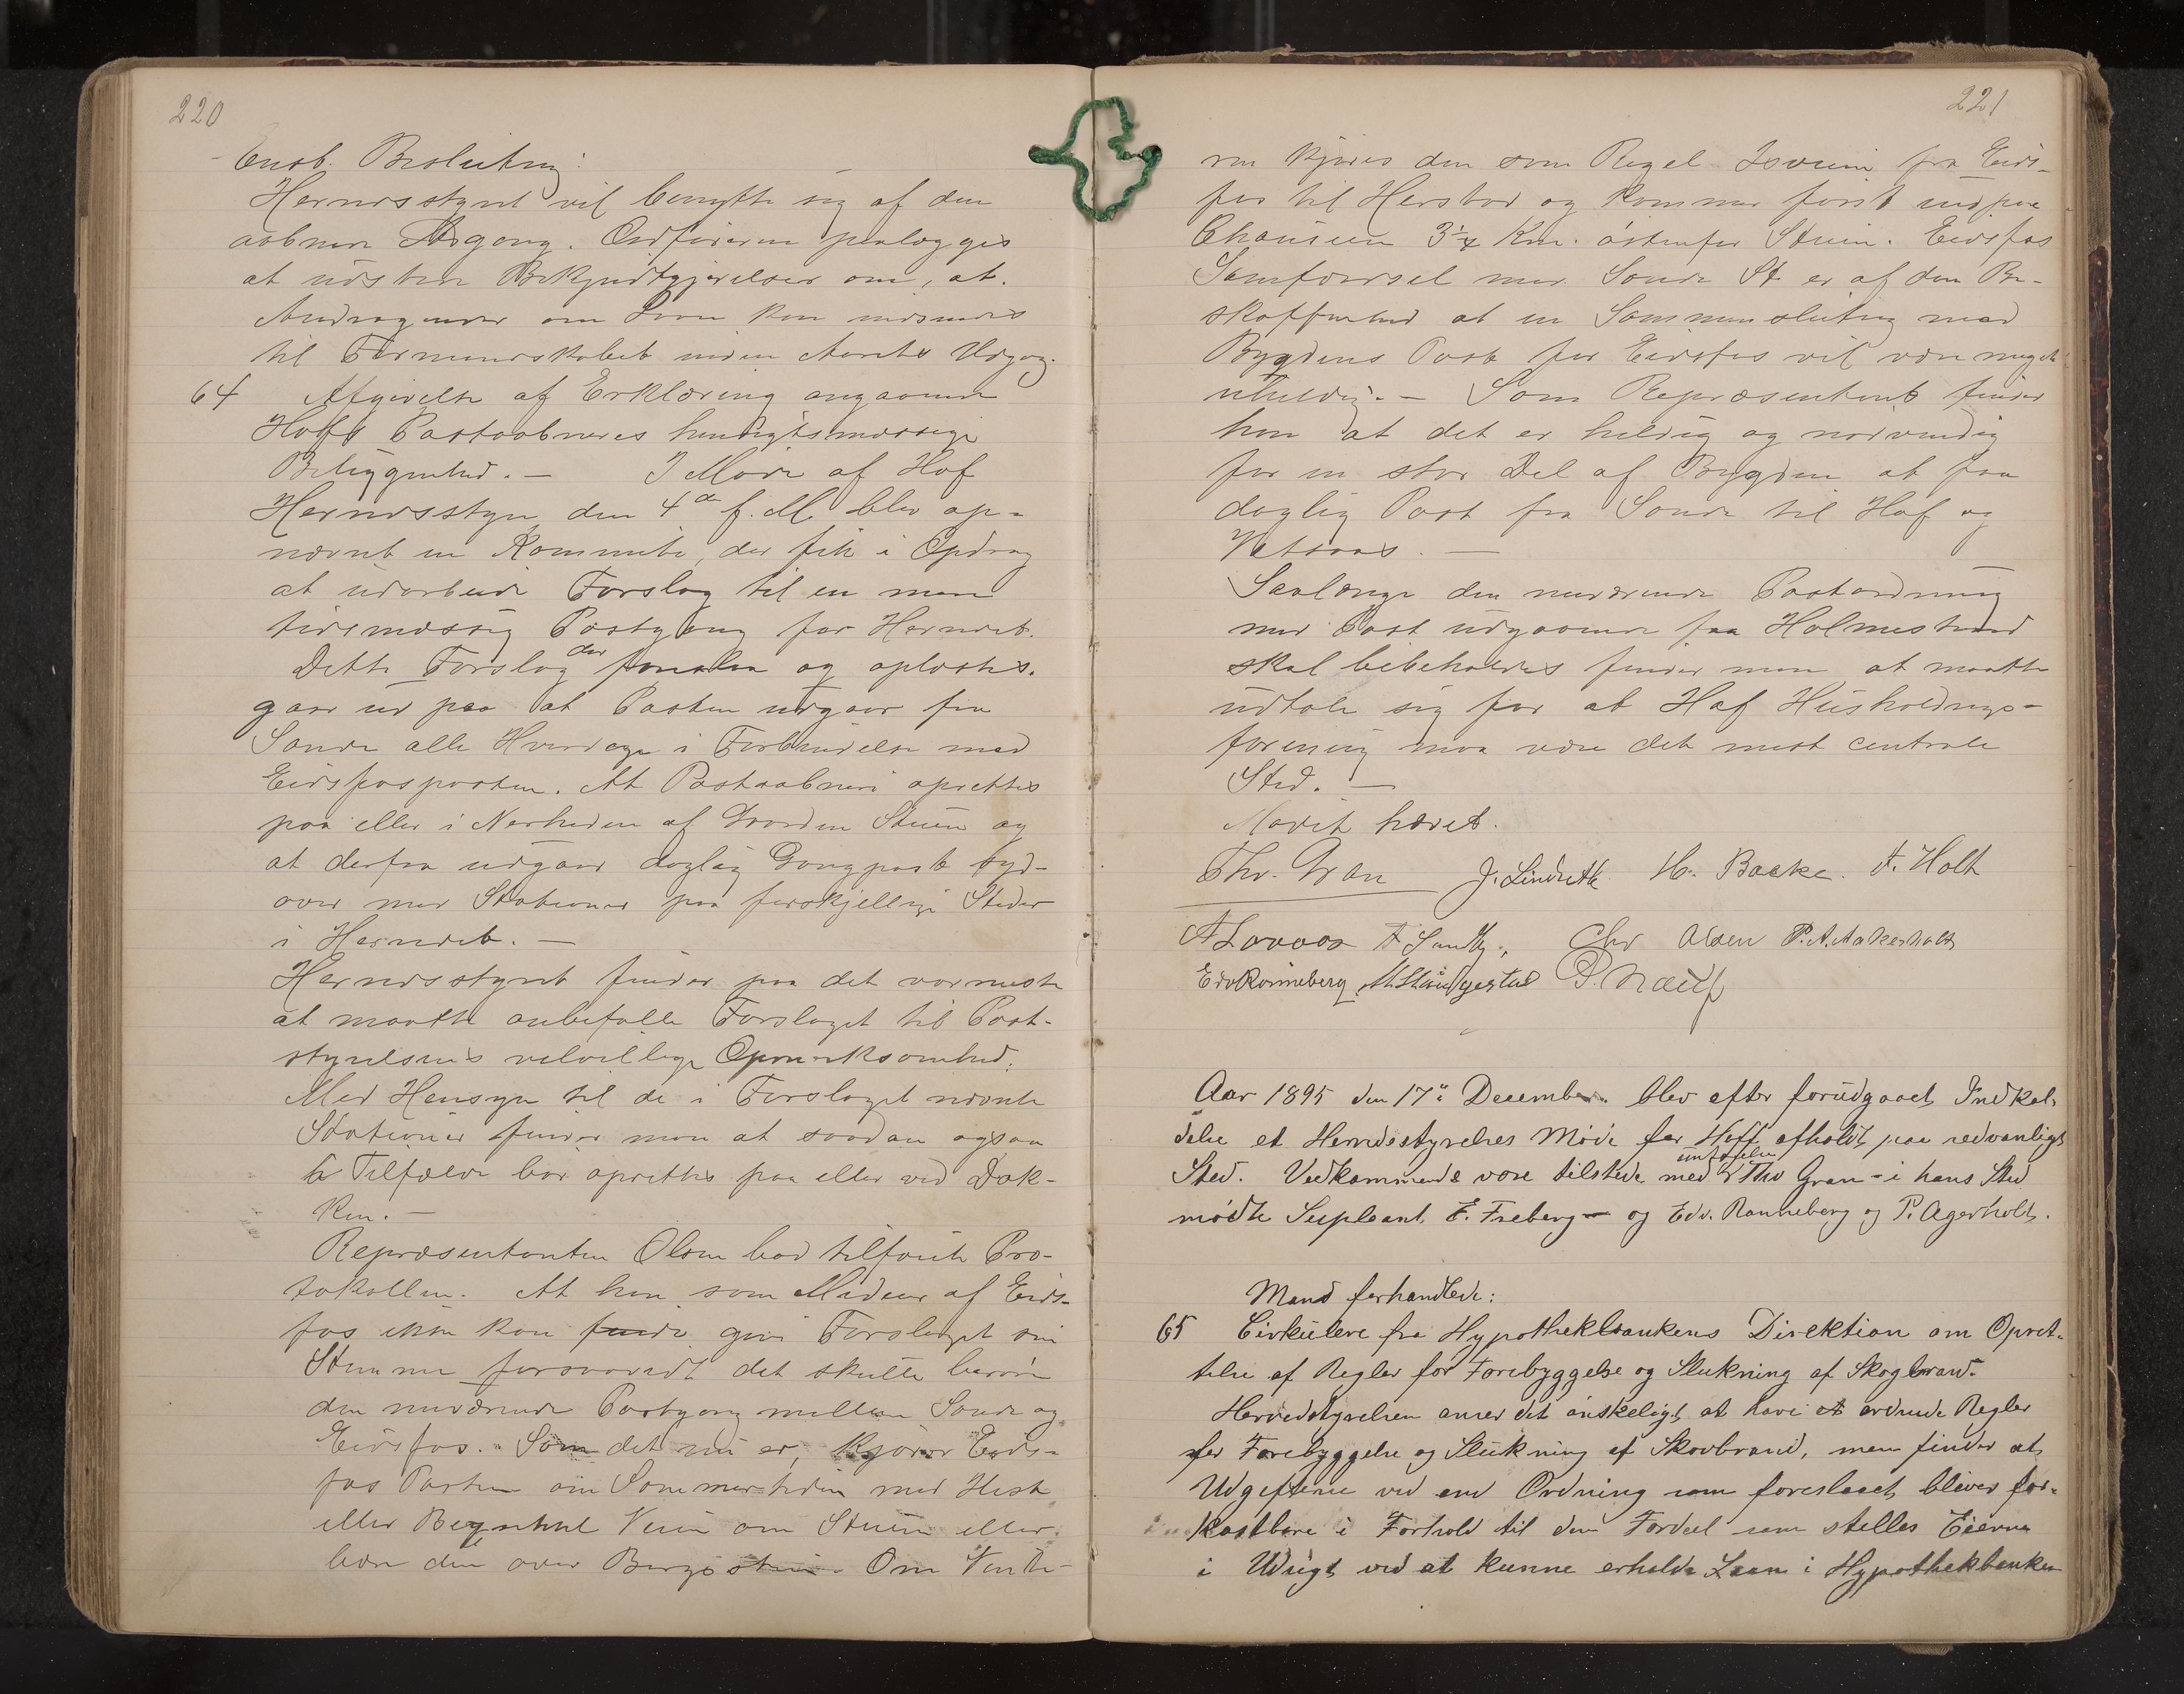 220
Enst. Beslutning:
Herredsstyret vil benytte sig af den
aabnede Adgang. Ordføreren paalægges
at udstede Bekjendtgjørelser om, at
Andragender om Laan kan indsendes
til Formandskabet inden Aarets Udgang.
64 Afgivelse af Erklæring angaaende
Hoffs Postaabneries hensigtsmæssige
Beliggenhed. — I Møde af Hof
Herredsstyre den 4de f. M. blev op-
nævnt en Kommite, der fik i Opdrag
at udarbeide Forslag til en mere
tidsmæssig Postgang for Herredet.
Dette Forslag der forelaa og oplæstes.
gaar ud paa at Posten udgaar fra
Sande alle Hverdage i Forbindelse med
Eidsfosposten. At Postaabneri oprettes
paa eller i Nærheden af Gaarden Stuen og
at derfra udgaar daglig Gangpost syd-
over med Stationer paa forskjellige Steder
i Herredet. —
Herredsstyret finder paa det varmeste
at maatte anbefalle Forslaget til Post-
styrelsens velvillige Opmerksomhed.
Med Hensyn til de i Forslaget nævnte
Stationer finder man at saadan ogsaa
i Tilfælde bør oprettes paa eller ved Dok-
ken. —
Repræsentanten Olsen bad tilført Pro-
tokollen. At han som Medeier af Eids-
fos ikke kan finde give Forslaget sin
Stemme forsaavidt det skulle berøre
den nuværende Postgang mellem Sande og
Eidsfos. Som det nu er, kjører Eids-
fos Posten om Sommertiden med Hest
eller Veien om Stuen eller
bære den over . Om Vinte-
221
ren kjøres den som Regel Isveien fra Eids-
fos til Hersbo og kommer først indpaa
Chauseen 3¼ Km. østenfor Stuen. Eidsfos
Samfærdsel med Sande St er af den Be-
skaffenhed at en Sammenslutning med
Bygdens Post for Eidsfos vil være meget
uheldig. — Som Repræsentant finder
han at det er heldig og nødvendig
for en stor Del af Bygden at faa
daglig Post fra Sande til Hof og
Vatsaas. —
Saalænge den nuværende Postordning
med Post udgaaende fra Holmestrand
skal bibeholdes finder man at maatte
udtale sig for at Hof Husholdnings-
forening maa være det mest centrale
Sted. —
Mødet hævet.
Thv. Gran J. Lindseth H. Backe. A. Holt
A Lovaas F Sundby, Chr Olsen P. A. Aakerholt
Edv Rønneberg
Aar 1895 den 17de December blev efter forudgaaet Indkal-
delse et Herredsstyrelses Møde for Hoff afholdt paa sedvanligt
Sted. Vedkommende vare tilstede med undtagelse Thv Gran - i hans Sted
mødte Supleant E. Freberg — og Edv. Ranneberg og P. Agerholt.
Mand forhandlede:
65 Cirkulere fra Hypothekbankens Direktion om Opret-
telse af Regler for Forebyggelse og Slukning af Skogbrand.
Herredstyrelsen anser det ønskeligt at have et ordnede Regler
for Forebyggelse og Slukning af Skovbrand, men finder at
Udgifterne ved end Ordning som foreslaaet bliver for-
kostbare i Forhold til den Fordeel som stilles Eierne
i Udsigt ved at kunne erholde Laan i Hypothekbanken